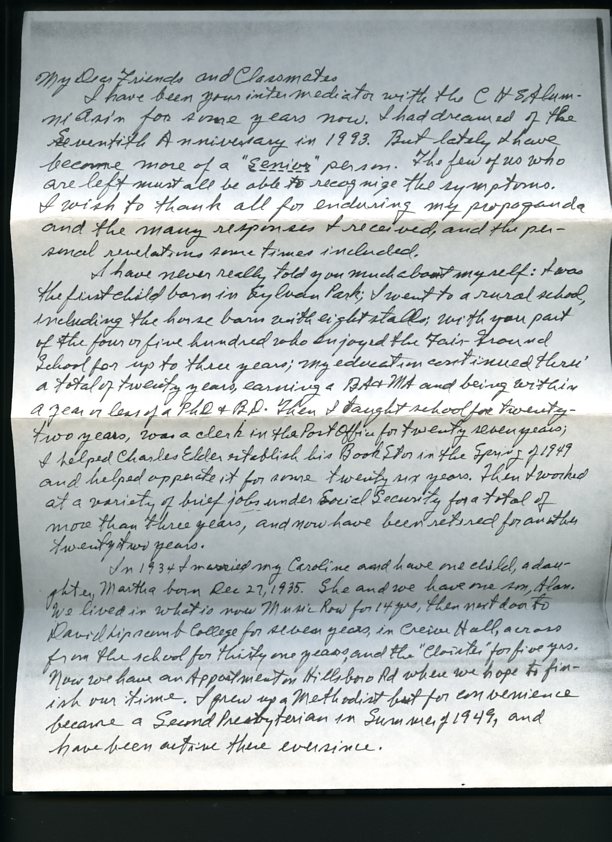 My Dear Friends and Classmates
I have been your intermediator with the C H S Alum-
ni Ass'n for some years now. I had dreamed of the
Seventith Anniversary in 1993. But lately I have
become more of a "Senior" person. The few of us who
are left must all be able to recognize the symptoms.
I wish to thank all for enduring my propaganda
and the many responses I received, and the per-
sonal revelations some times included.
I have never really told you much about myself: I was
the first child born in Sylvan Park; I went to a rural school,
including the horse barn with eight stalls; with you part
of the four or five hundred who enjoyed the Fair Ground
School for up to three years; my education continued thru
a total of twenty years, earning a BA & MA and being within
a year or less of a PhD & B.D. Then I taught school for twenty-
two years, was a clerk in the Post Office for twenty seven years;
I helped Charles Elder establish his Book Stor in the Spring of 1949
and helped opperate it for some twenty six years. Then I worked
at a variety of brief jobs under Social Security for a total of
more than three years, and now have been retired for another
twenty two years.
In 1934 I married my Caroline and have one child, a dau-
ghter, Martha born Dec 27, 1935. She and we have one son, Alan.
We lived in what is now Music Row for 14 yrs, then next door to
David Lipscomb College for seven years, in Creive Hall, across
from the school for thirty one years and the "Cloister" for five yrs.
Now we have an Appartment on Hillsboro Rd where we hope to fin-
ish our time. I grew up a Methodist but for convenience
became a Second Presbyterian in Summer of 1949, and
have been active there eversince.